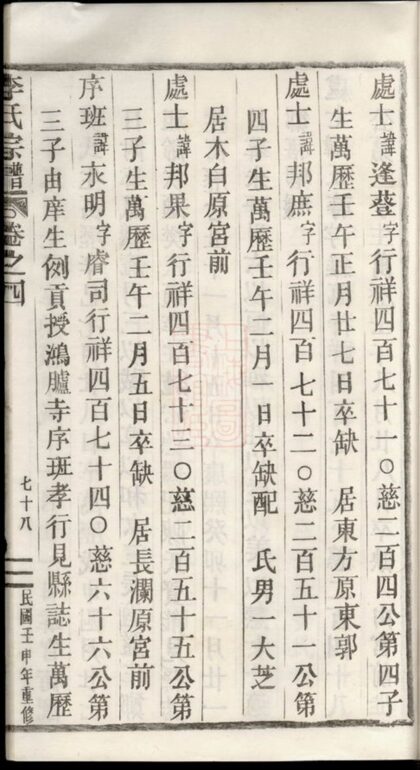 處士諱逢薹字行祥四百七十一○慈二百四公第四子
生萬歷壬午正月廿七日卒缺 居東方原東郭
處士諱邦庶字行祥四百七十二○慈二百五十一公第
四子生萬歷壬午二月一日卒缺配 氏男一大芝
居木白原宮前
處士諱邦果字行祥四百七十三○慈二百五十五公第
三子生萬歷壬午二月五日卒缺 居長瀾原宮前
序班諱永明字睿司行祥四百七十四○慈六十六公第
三子由庠生例貢授鴻臚寺序班孝行見縣誌生萬歷
李氏宗譜 卷之四
七十八
民國壬申年重修